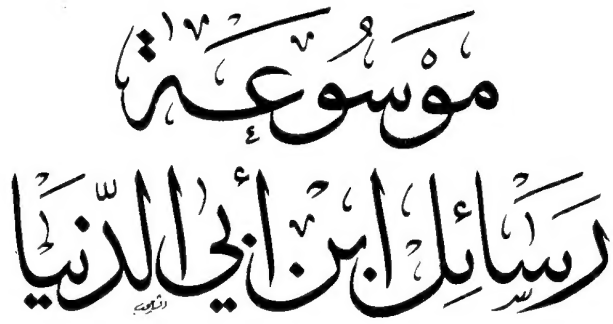 مَوْسُوعَة
رَسَائِل ابن أبي الدّنيَا